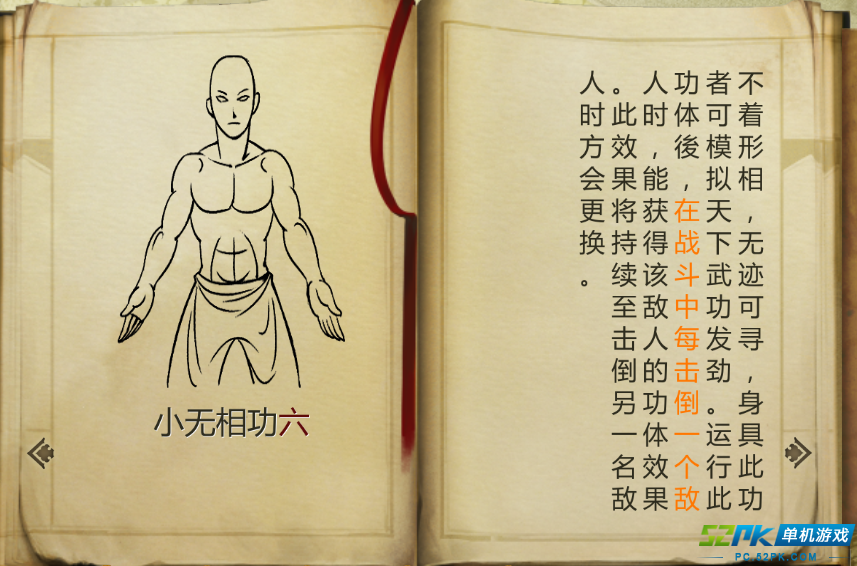 小无相功六
不着形相，无迹可寻，身具此功
者可模拟天下武功发劲。运行此
功体後，在战斗中每击倒一个敌
人时，能获得该敌人的功体效果
。此效果将持续至击倒另一名敌
人时方会更换。
52PK单机游戏
PC.52PK.COM